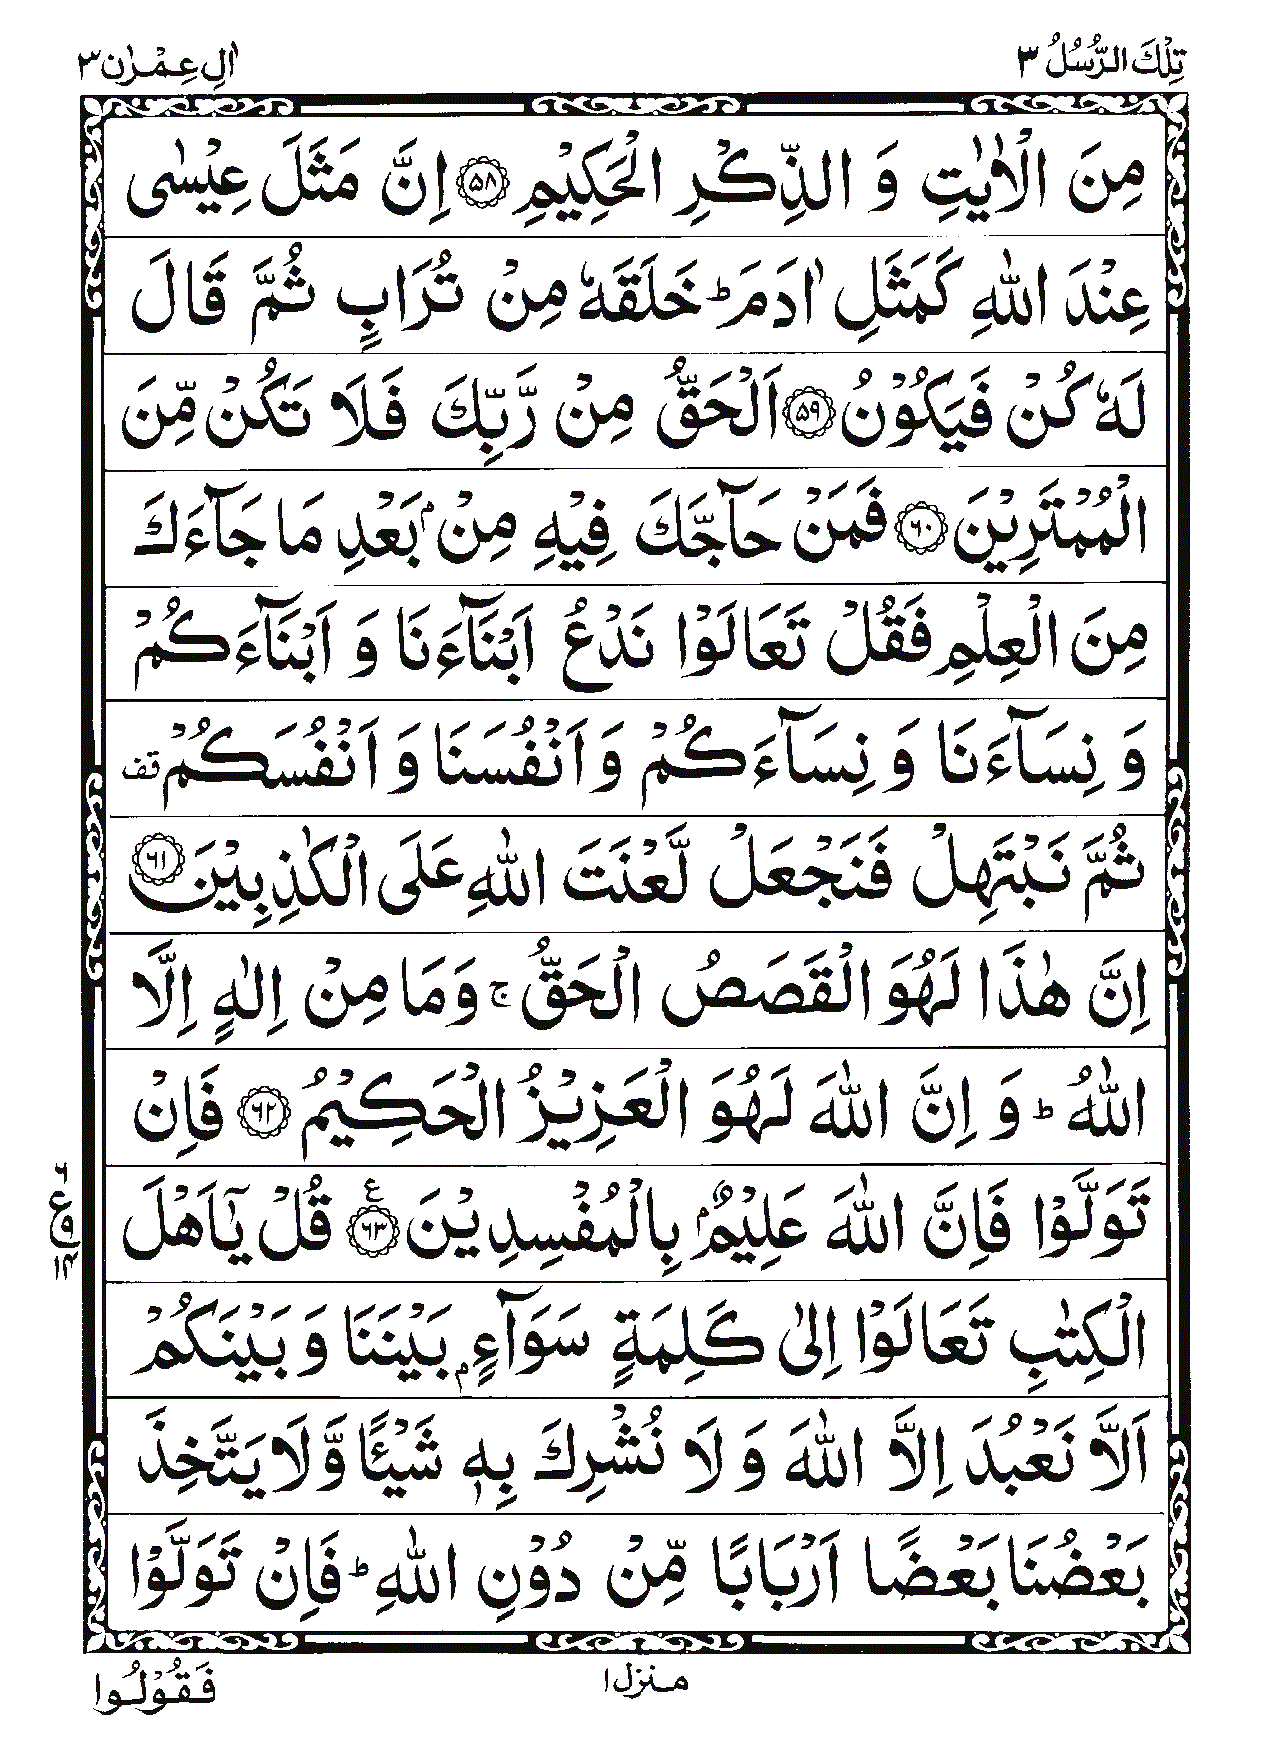 تِلْكَ الرُّسُلُ ٣
اٰلِ عِمْرٰن ٣
مِنَ الْاٰیٰتِ وَ الذِّكْرِ الْحَكِیْمِ ﴿۵۸﴾ اِنَّ مَثَلَ عِیْسٰى
عِنْدَ اللّٰهِ كَمَثَلِ اٰدَمَ ؕ خَلَقَهٗ مِنْ تُرَابٍ ثُمَّ قَالَ
لَهٗ كُنْ فَیَكُوْنُ ﴿۵۹﴾ اَلْحَقُّ مِنْ رَّبِّكَ فَلَا تَكُنْ مِّنَ
الْمُمْتَرِیْنَ ﴿۶۰﴾ فَمَنْ حَآجَّكَ فِیْهِ مِنْۢ بَعْدِ مَا جَآءَكَ
مِنَ الْعِلْمِ فَقُلْ تَعَالَوْا نَدْعُ اَبْنَآءَنَا وَ اَبْنَآءَكُمْ
وَ نِسَآءَنَا وَ نِسَآءَكُمْ وَ اَنْفُسَنَا وَ اَنْفُسَكُمْ قف
ثُمَّ نَبْتَهِلْ فَنَجْعَلْ لَّعْنَتَ اللّٰهِ عَلَى الْكٰذِبِیْنَ ﴿۶۱﴾
اِنَّ هٰذَا لَهُوَ الْقَصَصُ الْحَقُّ ۚ وَمَا مِنْ اِلٰهٍ اِلَّا
اللّٰهُ ؕ وَ اِنَّ اللّٰهَ لَهُوَ الْعَزِیْزُ الْحَكِیْمُ ﴿۶۲﴾ فَاِنْ
تَوَلَّوْا فَاِنَّ اللّٰهَ عَلِیْمٌۢ بِالْمُفْسِدِیْنَ ﴿۶۳﴾ ع قُلْ یٰۤاَهْلَ
۶
ع
۹
۱۴
الْكِتٰبِ تَعَالَوْا اِلٰى كَلِمَةٍ سَوَآءٍۭ بَیْنَنَا وَ بَیْنَكُمْ
اَلَّا نَعْبُدَ اِلَّا اللّٰهَ وَ لَا نُشْرِكَ بِهٖ شَیْـًٔا وَّ لَا یَتَّخِذَ
بَعْضُنَا بَعْضًا اَرْبَابًا مِّنْ دُوْنِ اللّٰهِ ؕ فَاِنْ تَوَلَّوْا
منزل ۱
فَقُوْلُوا